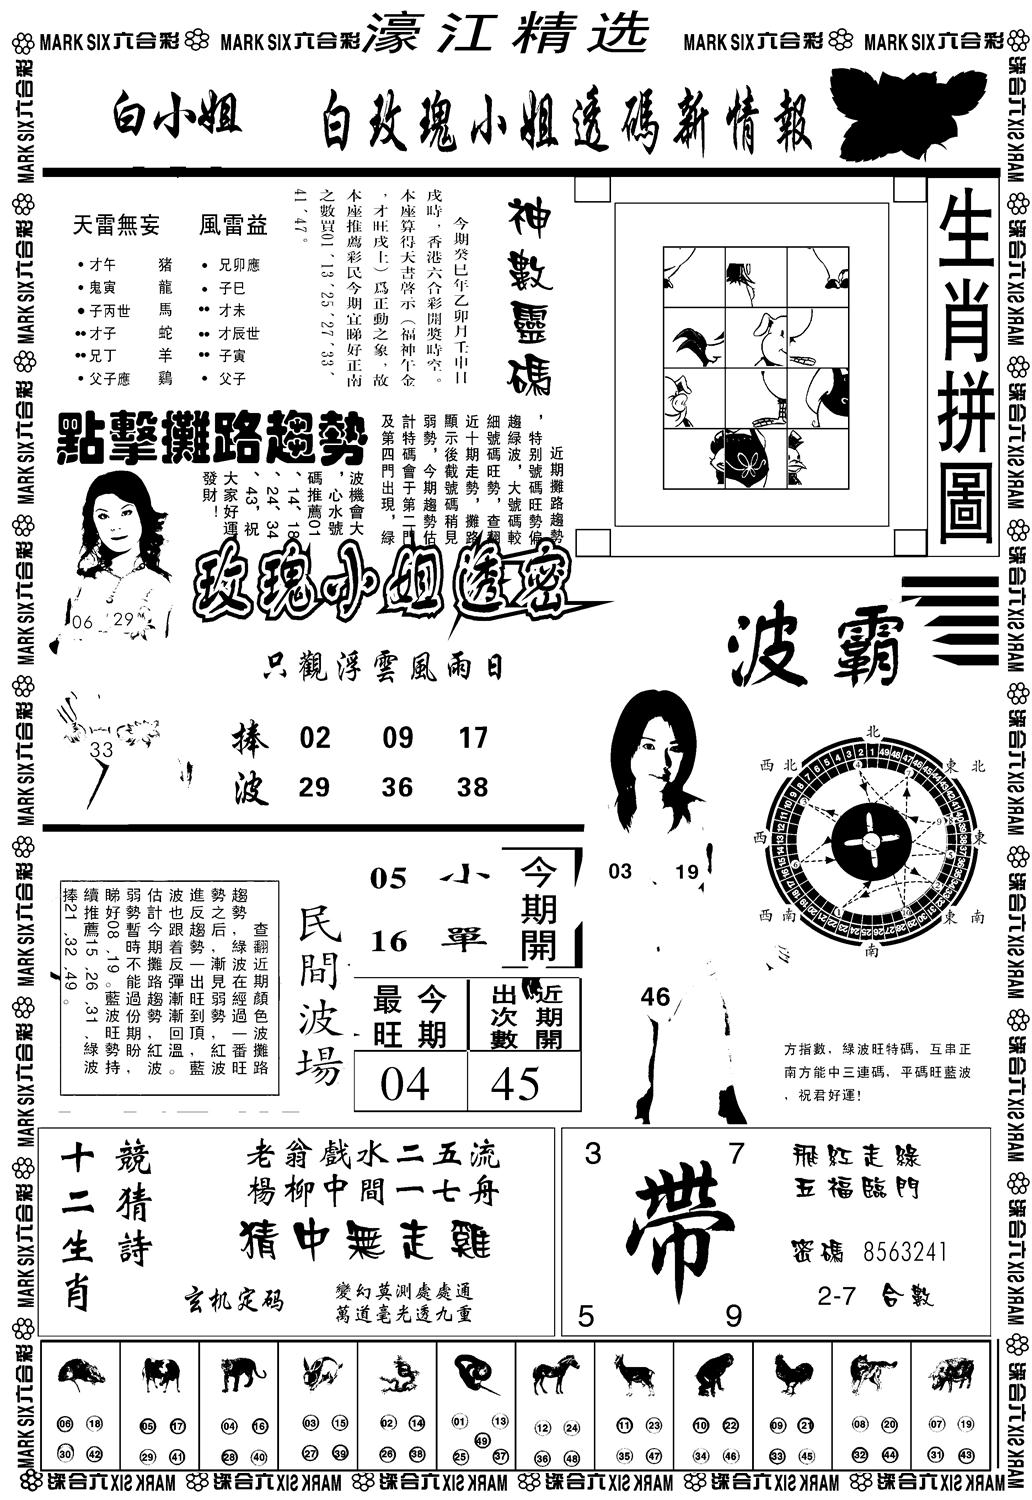 MARK SIX六合彩 MARK SIX六合彩 濠江精选 MARK SIX六合彩 MARK SIX六合彩
白小姐 白玫瑰小姐透碼新情報
天雷無妄 風雷益
•才午 猪 •兄卯應
•鬼寅 龍 •子巳
•子丙世 馬 ••才未
••才子 蛇 ••才辰世
••兄丁 羊 ••子寅
•父子應 鷄 ••父子
神數靈碼
今期癸巳年乙卯月壬申日
戌時，香港六合彩開獎時空。
本座算得天書啓示（福神午金
，才旺戌上）爲正動之象，故
本座推薦彩民今期宜睇好正南
之數買01、13、25、27、33、
41、47。
生肖拼圖
點擊攤路趨勢
近期攤路趨勢
，特别號碼旺勢偏
趨緑波，大號碼較
細號碼旺勢，查翻
近十期走勢，攤路
顯示後截號碼稍見
弱勢，今期趨勢估
計特碼會于第二門
及第四門出現，緑
波機會大
，心水號
碼推薦01
、14、18
、24、34
、43，祝
大家好運
發財！
06 29
33
玫瑰小姐透密
只觀浮雲風雨日
捧 02 09 17
波 29 36 38
波霸
北
西北 東北
西 東
西南 東南
南
03 19
46
方指數，綠波旺特碼，互串正
南方能中三連碼，平碼旺藍波
，祝君好運！
查翻近期顔色波攤路
趨勢，綠波在經過一番旺
勢之后，漸見弱勢，紅波
進反趨勢一出旺到頂，藍
波也跟着反彈漸漸回溫。
估計今期攤路趨勢，紅波
弱勢暫時不能過份期盼，
睇好08,19。藍波旺勢持
續推薦15,26,31,綠波
捧21,32,49。
民間波場
05 小 今期開
16 單
今期最旺 近期開出次數
04 45
十二生肖
競猜詩
老翁戲水二五流
楊柳中間一七舟
猜中無走雞
玄机定码 變幻莫測處處通
萬道毫光透九重
3 7
帶
5 9
飛紅走綠
五福臨門
密碼 8563241
2-7 合數
06 18 05 17 04 16 03 15 02 14 01 13 12 24 11 23 10 22 09 21 08 20 07 19
49
30 42 29 41 28 40 27 39 26 38 25 37 36 48 35 47 34 46 33 45 32 44 31 43
MARK SIX六合彩 MARK SIX六合彩 MARK SIX六合彩 MARK SIX六合彩 MARK SIX六合彩